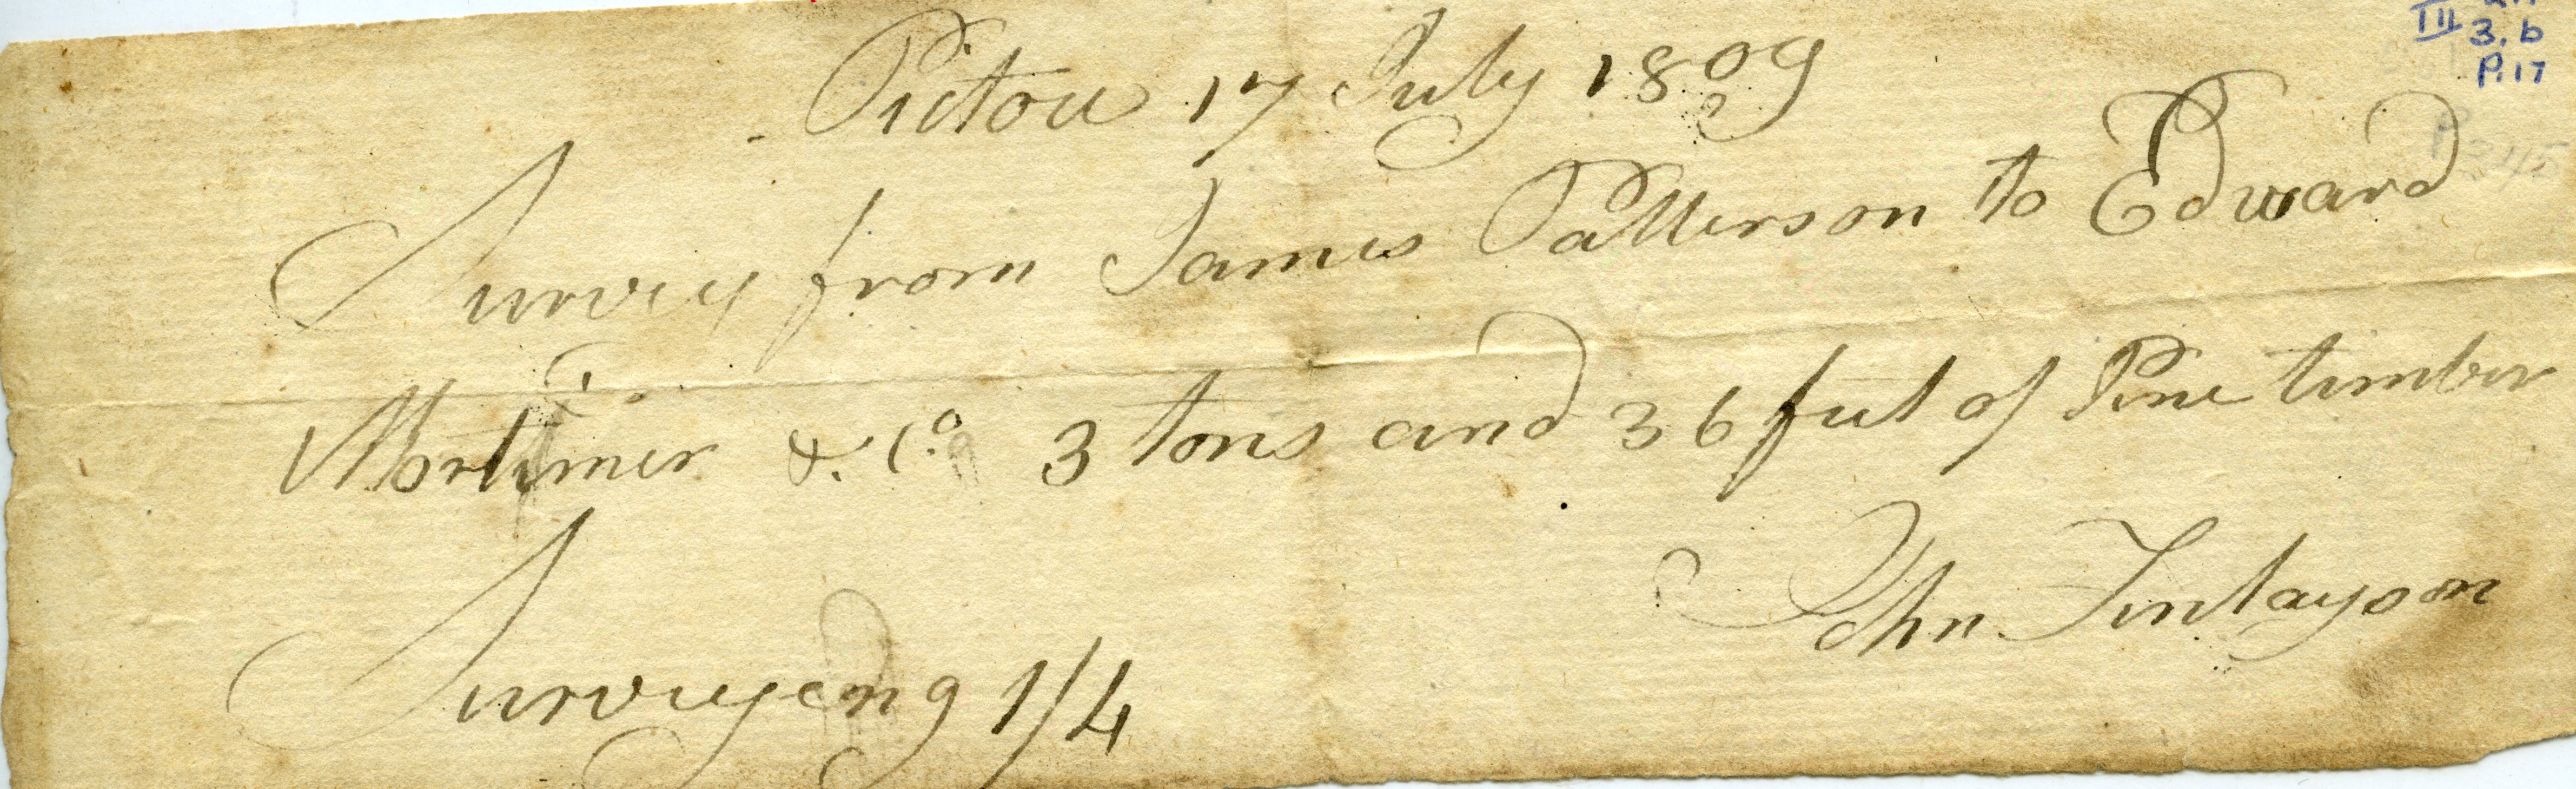 III
3. b
P. 17
Pictou 17 July 1809
Survey from James Patterson to Edward
Mortimer & Co 3 tons and 36 feet of Pine timber
John Finlayson
Surveyeng 1/4